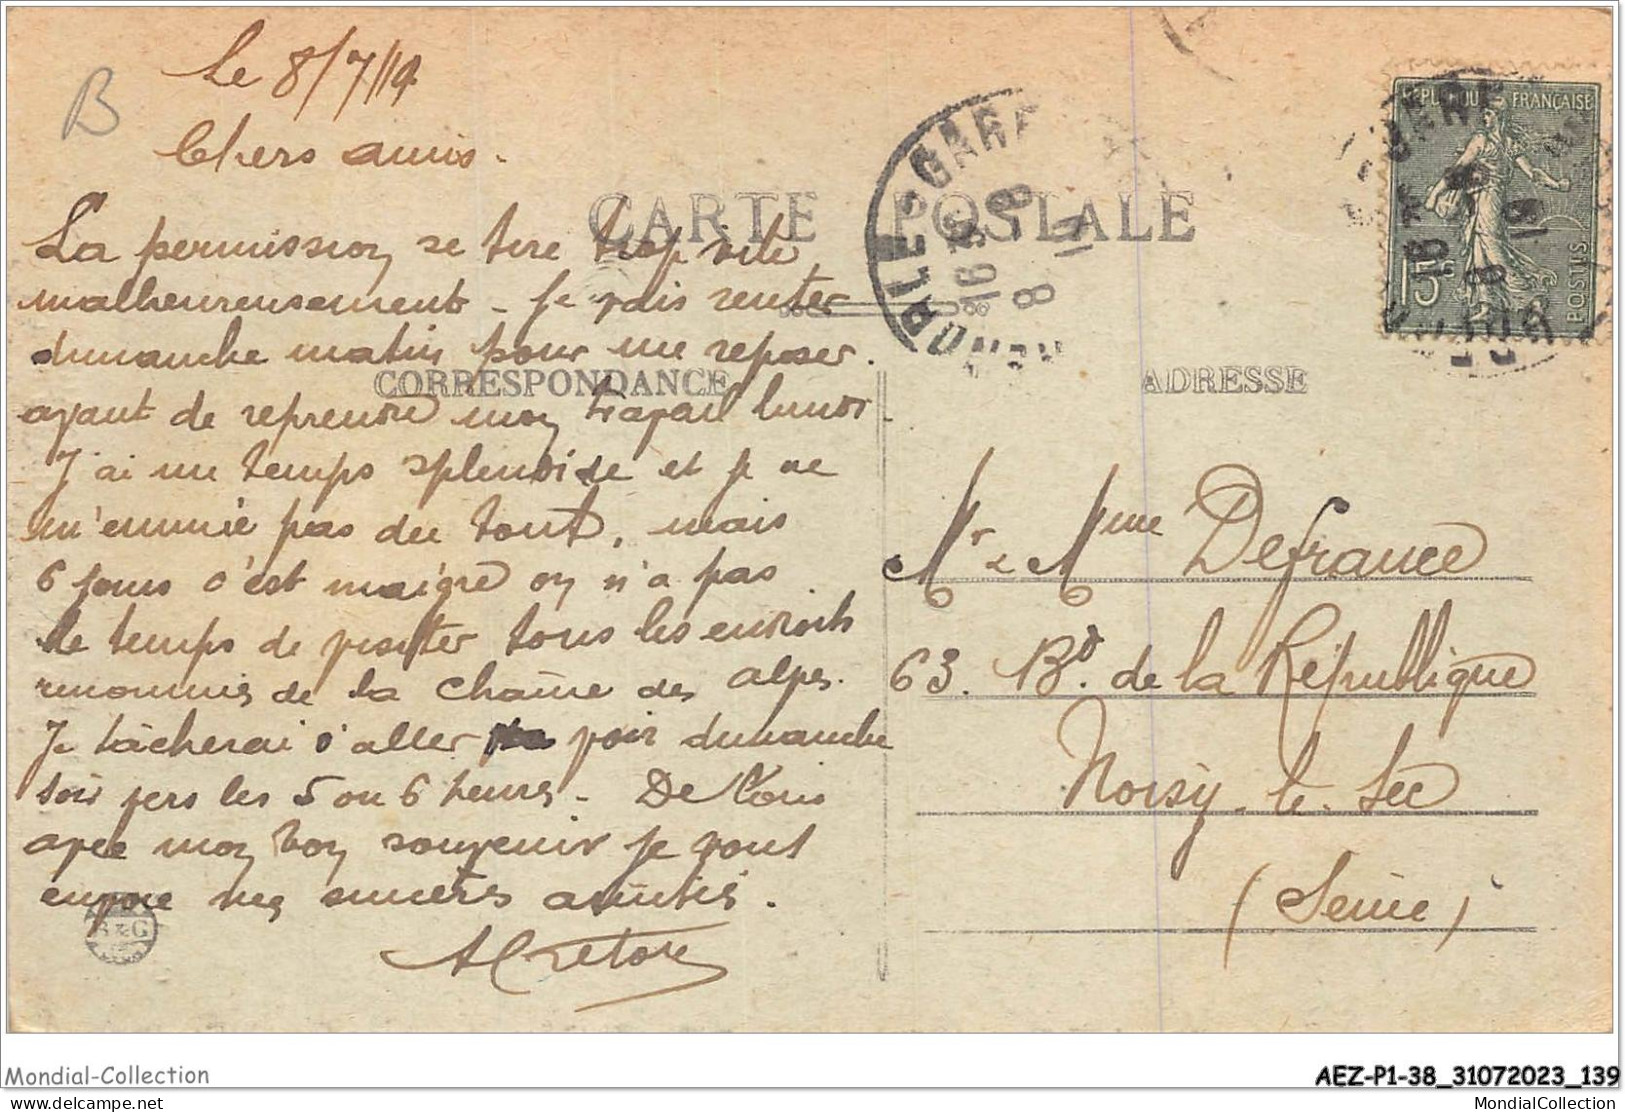 B
Le 8/7/19
Chers amis.
La permission se tire trop vite
malheureusement - Je vais renter
dimanche matin pour me reposer.
ayant de reprendre mon travail lundi.
J'ai un temps splendide et je ne
m'ennuie pas du tout, mais
6 jours c'est maigre on n'a pas
le temps de visiter tous les endroits
renommés de la Chaîne des alpes.
Je tâcherai d'aller voir dimanche
soir vers les 5 ou 6 heures. De
avec mon bon souvenir je vous
envoie mes sincères amitiés.
CARTE POSTALE
CORRESPONDANCE
ADRESSE
RÉPUBLIQUE FRANÇAISE
15c
POSTES
GARE
16 45
8
19
Mr & Mme Defrance
63. Bd. de la République
Noisy-le-Sec
(Seine)
B&G
Mondial-Collection
AEZ-P1-38_31072023_139
delcampe.net
MondialCollection